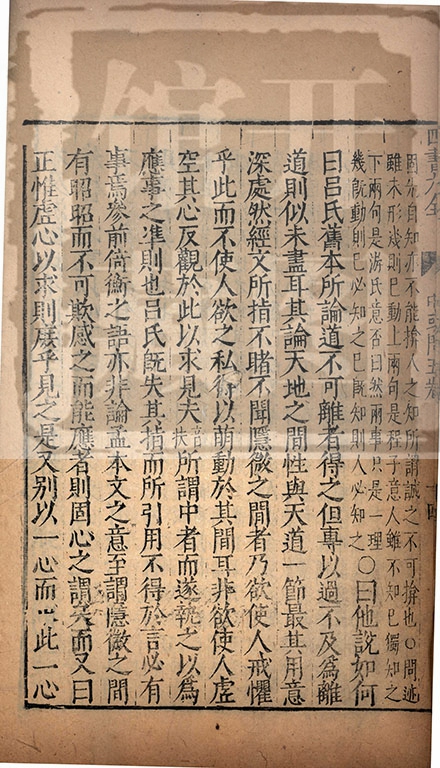 固先自知亦不能揜人之知所謂誠之不可揜也〇問迹
雖未形幾則已動上兩句是程子意人雖不知已獨知之
下兩句是游氏意否曰然兩事只是一理
幾既動則已必知之已既知則人必知之〇曰他說如何
曰呂氏舊本所論道不可離者得之但專以過不及為離
道則似未盡耳其論天地之間性與天道一節最其用意
深處然經文所指不睹不聞隱微之間者乃欲使人戒懼
乎此而不使人欲之私得以萌動於其間耳非欲使人虛
空其心反觀於此以求見夫音扶所謂中者而遂執之以為
應事之準則也呂氏既失其指而所引用不得於言必有
事焉參前倚衡之語亦非論孟本文之意至謂隱微之間
有昭昭而不可欺感之而能應者則固心之謂矣而又曰
正惟虛心以求則庶乎見之是又別以一心而此一心
四書大全
中庸或問